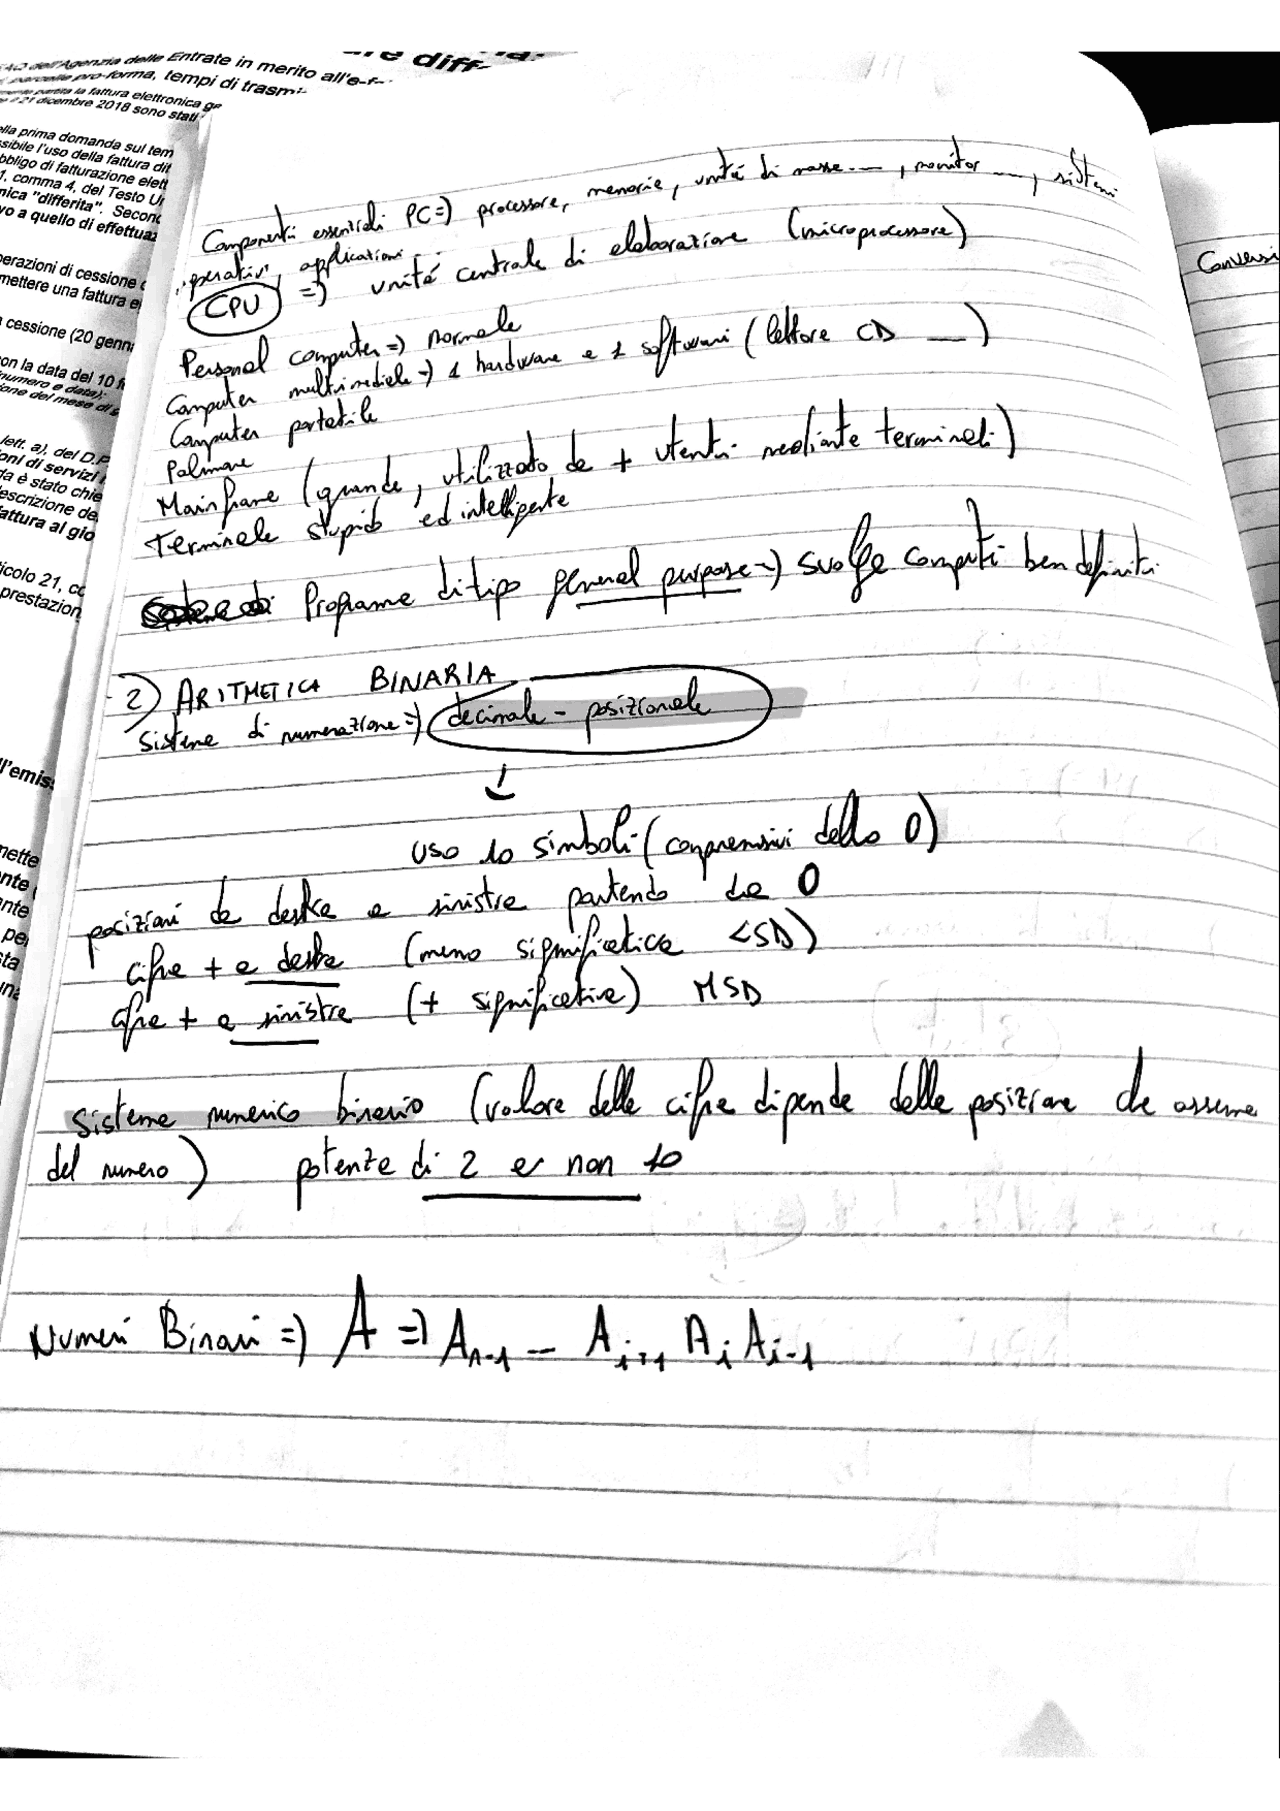 Componenti essenziali PC => processore, memorie, unità di masse ..., monitor ..., sistemi
operativi, applicazioni ...
CPU => unità centrale di elaborazione (microprocessore)
Personal computer => normale
Computer multimediale => 1 hardware e 1 software (lettore CD ...)
Computer portatile
Palmare
Mainframe (grande, utilizzato da + utenti mediante terminali)
Terminale stupido ed intelligente
Programma di tipo general purpose => svolge compiti ben definiti
2) ARITMETICA BINARIA
Sistema di numerazione => decimale - posizionale
↓
uso 10 simboli (comprensivi dello 0)
posizioni da destra a sinistra partendo da 0
cifra + a destra (meno significativa LSD)
cifra + a sinistra (+ significativa) MSD
sistema numerico binario (valore della cifra dipende dalla posizione che assume
del numero) potenze di 2 e non 10
Numeri Binari => A => An-1 - Ai+1 Ai Ai-1
AQ dell'Agenzia delle Entrate in merito all'e-f
parcelle pro-forma, tempi di trasmi
partita la fattura elettronica ge
21 dicembre 2018 sono stati
ella prima domanda sul tem
ssibile l'uso della fattura dif
bbligo di fatturazione elett
1, comma 4, del Testo U
nica "differita". Second
vo a quello di effettuaz
perazioni di cessione
mettere una fattura e
cessione (20 genna
on la data del 10
numero e data);
ione del mese di
lett. a), del D.P
oni di servizi
da è stato chie
escrizione de
attura al gio
icolo 21, co
prestazion
l'emis
mette
nte
nte
pe
sta
una
Conversi